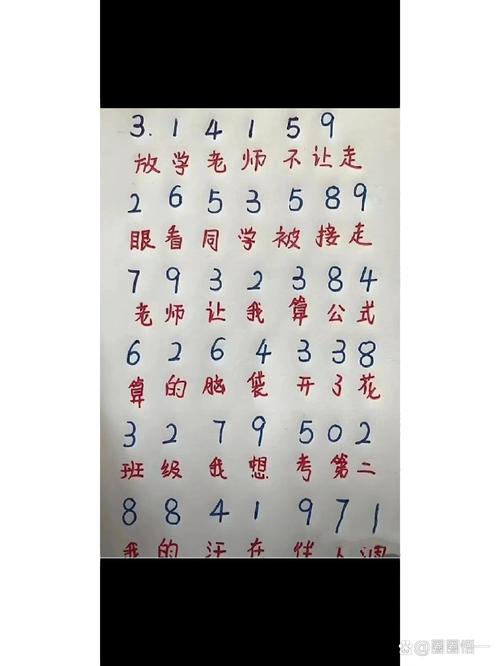 3. 1 4 1 5 9
放学老师不让走
2 6 5 3 5 8 9
眼看同学被接走
7 9 3 2 3 8 4
老师让我算公式
6 2 6 4 3 3 8
算的脑袋开了花
3 2 7 9 5 0 2
班级我想考第二
8 8 4 1 9 7 1
我的汗在伴